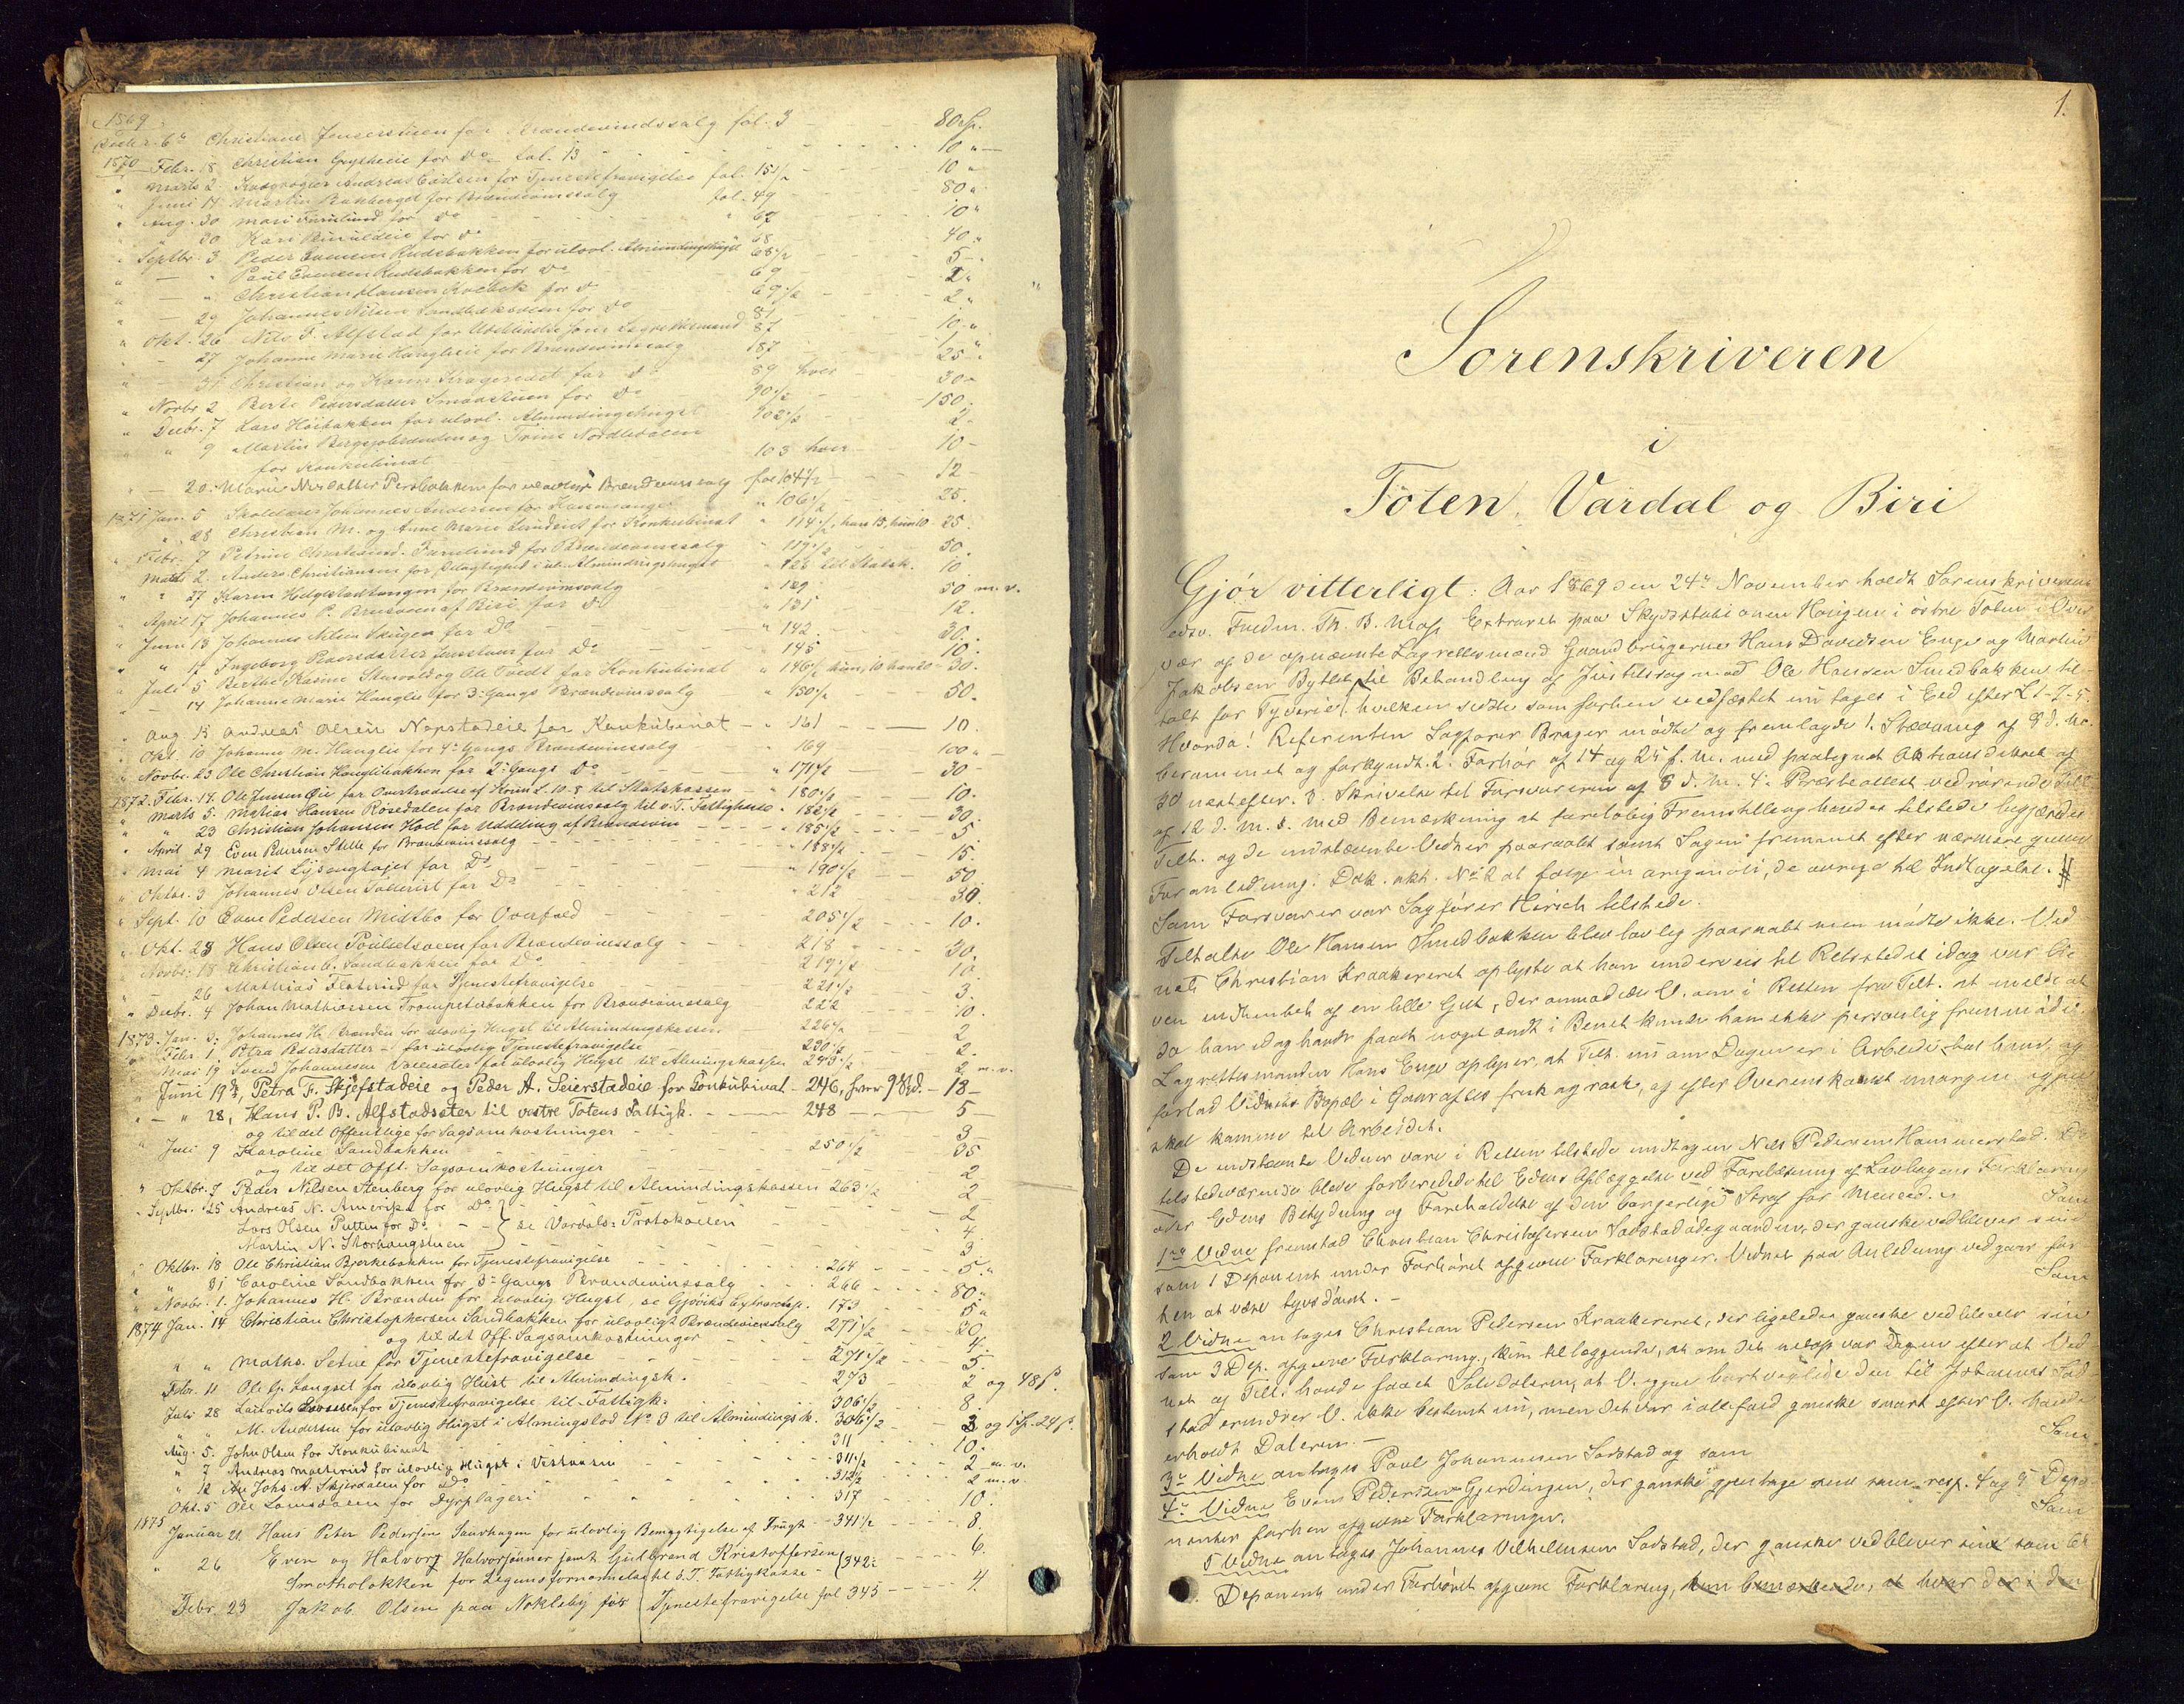 1869
Decbr. 6te Christiane Jenserstuen for Brændevinssalg fol. 3 - - 80 Sp.
1870 Febr. 18 Christian Grytheie for Do fol. 13 - - 10 "
" Marts 2 Andreas Carlsen for Tjenestefravigelse fol. 15 1/2 - 10 "
" Juni 14 Martin Bakberget for Brændevinssalg fol. 49 80 "
" Aug. 30 Mari Furulund for Do " 67 10 "
" " 30 Kari for Do 68 40 "
" Septbr. 3 Peder Evensen Rudsbakken for ulovl. Almindingshugst 68 1/2 5 -
" — " Paul Evensen Rudsbakken for Do 69 2 "
" — " Christian Hansen Kolbek for Do 69 1/2 2 "
" — 29 Johannes Nilsen for Do 81
" Okt. 26 Nils F. Alfstad for Udeblivelse som Lagrettemand 87 10 "
" — 27 Johanne Marie Hanglie for Brændevinssalg 187 25 -
" — 31 Christian og Karen Kragerud for Do 89 hver - 30 "
" Novbr. 2 Berte Pedersdatter Smedstuen for Do 90 1/2 150.
" Decbr. 7 Lars Høibakken for ulovl. Almindingshugst 102 1/2 2.
" " 9 Martin og Trine Nordledalen
for Konkubinat 103 hver 10 -
" — 20. Marie Persbakken for Brændevinssalg fol 104 1/2 - 12 -
1871 Jan. 5 Skolelærer Johannes Andersen for " 106 1/2 25.
" " 28 Christian M. og Anne Marie for Konkubinat " 114 1/2, han 15, hun 10 25.
" Febr. 7 Petrine Furulund for Brændevinssalg " 119 1/2 50.
" Marts 2. Anders Christiansen for Delagtighed i ul. Almindingshugst " 122 til Statsk. 10
" " 27 Karen Helgestadtangen for Brændevinssalg " 129 50 m. v.
" April 17 Johannes P. af Biri for Do " 131 12.
" Juni 13 Johannes Nilsen Skugen for Do " 142 30.
" " 14 Ingeborg Pedersdatter for Do " 145 10.
" Juli 5 Berthe Karine og Ole Tvedt for Konkubinat " 146 1/2 hun 10 han 20 - 30.
" — 14 Johanne Marie Hanglie for 3die Gangs Brændevinssalg " 150 1/2 50.
" Aug 15 Andreas Olsen for Konkubinat — " 161 — 10.
" Okt. 10 Johanne M. Hanglie for 4de Gangs Brændevinssalg " 169 100 "
" Novbr. 23 Ole Christian Hanglibakken for 2den Gangs Do " 171 1/2 30 -
1872. Febr. 14. Ole Jensen for Overtrædelse af til Statskassen " 180 1/2 10.
" Marts 5. Mathias Hansen Rosedalen for Brændevinssalg til v. T. Fattigkasse " 182 1/2 30.
" " 23 Christian Johansen Hoel for Uddeling af Brændevin " 185 1/2 5
" April 29 Even Pedersen Stille for Brændevinssalg " 188 1/2 15.
" Mai 4 Marit Lysenghøjet for Do " 190 1/2 50
" Oktbr. 3 Johannes Olsen for Do " 212 30.
" Sept. 10 Even Pedersen Midtbo for Overfald 205 1/2 10.
" Okt. 28 Hans Olsen for Brændevinssalg 218 30.
" Novbr. 18 Christian G. Sandbakken for Do 219 1/2 10
" — 26 Mathias Flaterud for Tjenestefravigelse 221 1/2 3.
" Decbr. 4 Johan Mathiassen Trompeterbakken for Brændevinssalg 222 10.
1873. Jan. 3. Johannes H. Brænden for ulovlig Hugst til Almindingskassen 226 1/2 2
" Febr. 1 Petra Pedersdatter - for ulovlig Tjenestefravigelse 230 1/2 2.
" Mai 19 Svend Johannesen for ulovlig Hugst til Almingskassen 243 1/2 2 m. v.
" Juni 19de, Petra F. Skjefstadeie og Peder A. Seierstadeie for Konkubinat - 246, hver 9 Spd. - 18 -
" — " 28, Hans P. B. Alfstadseter til vestre Totens Fattigk. - 248 — 5 —
og til det Offentlige for Sagsomkostninger 3
" Juli 9 Karoline Sandbakken 250 1/2 35
og til det Offl. Sagsomkostninger 2
" Oktbr. 7 Peder Nilsen Stenberg for ulovlig Hugst til Almindingskassen 263 1/2 2
" Septbr. 25 Andreas N. Amerika for Do 2
Lars Olsen Putten for Do } se Vardals Protokollen 4.
Martin N. Storhaugstuen 3
" Oktbr. 18 Ole Christian Bjerkebakken for Tjenestefravigelse 264 5 "
" " 31 Caroline Sandbakken for 3die Gangs Brændevinssalg 266 80 "
" Novbr. 1. Johannes H. Brænden for ulovlig Hugst, se Gjøviks Extraretsp. 173 5 "
1874 Jan. 14 Christian Christophersen Sandbakken for ulovligt Brændevinssalg 271 1/2 20
og til det Off. Sagsomkostninger 4.
" " Maths. Setne for Tjenestefravigelse 271 1/2 5.
Febr. 11 Ole G. Langset for ulovlig Hust til Almindingsk. 273 2 og 48 s.
Juli 28 Laurits Larsen for Tjenestefravigelse til Fattigk. 306 1/2 8.
" " M. Andersen for ulovlig Hugst i Almingslod No 3 til Almindingsk. 306 1/2 3 og 1 Sp. 24 s.
Aug. 5. John Olsen for Konkubinat 311 10.
" 7 Andreas Mælerud for ulovlig Hugst i Vestaasen 311 1/2 2 m. v.
" 12 Johs. A. Skjerdalen for Do 312 1/2 2 m. v.
Okt. 5 Ole Lomsdalen for Dyrplageri 317 10.
1875
Januar 21. Hans Peter Pedersen Saarhagen for ulovlig Bemægtigelse af Frugt - 341 1/2 8.
" 26 Even og Halvor Halvorsønner samt Gulbrand Kristoffersen
Smetholøkken for Legemsfornærmelse til Ø. T. Fattigkasse - 342. 6.
Febr. 23 Jakob Olsen paa Nøkleby for Tjenestefravigelse fol 345 4.
1.
Sorenskriveren
i
Toten, Vardal og Biri
Gjør vitterligt: Aar 1869 den 24de November holdt Sorenskriverens
edsv. Fuldm. Th. B. Moss Extraret paa Skydsstationen Haugen i østre Toten i Over
vær af de opnævnte Lagrettesmænd Gaardbrugerne Hans Davidsen Enge og Martin
Jakobsen Bytlet til Behandling af Justitssag mod Ole Hansen Smedbakken til-
talt for Tyveri, hvilken sidste som forhen uedfæstet nu tages i Eed efter L 1-7-5
Hvorda! Referenten Sagfører Brager mødte og fremlagde 1. Stævning af 8 d. M.
berammet og forkyndt. 2. Forhør af 14 og 25 f. M. med paategnet Aktionsdekret af
30 næstefter. 3. Skrivelse til Forsvareren af 8 d. M. 4. Præsteattest vedrørende Tilt.
af 12 d. M. 5. med Bemærkning at foreløbig Fremstilling haves tilstede begjærede
Tilt. og de indstævnte Vidner paaraabt samt Sagen fremmet efter nærmere given
Foranledning. Dok. akt. No 2 at følge in originali, de øvrige til Indtagelse. #
Som Forsvarer var Sagfører Hirsch tilstede.
Tiltalte Ole Hansen Smedbakken blev lovlig paaraabt men mødte ikke. Vid-
net Christian Kraakereret oplyste at han underveis til Retsstedet idag var ble-
ven indhentet af en lille Gut, der anmodede V. om i Retten fra Tilt. at melde at
da han idag havde faaet noget ondt i Benet kunde han ikke personlig fremmøde.
Lagrettesmanden Hans Enge oplyser, at Tilt. nu om Dagen er i Arbeide hos ham, og
forlod Vidnets Bopæl i Gaaraftes frisk og rask, og efter Overenskomst imorgen igjen
skal komme til Arbeidet.
De indstævnte Vidner vare i Retten tilstede undtagen Nils Pedersen Hammerstad. De
tilstedeværende bleve forberedede til Edens Aflæggelse ved Forelæsning af Lovbogens Forklaring
over Edens Betydning og Foreholdelse af den borgerlige Straf for Meneed. Som
1ste Vidne fremstod Christian Christofersen Sodstadødegaarden, der ganske vedblever sin
som 1 Deponent under Forhøret afgivne Forklaringer. Vidnet paa Anledning vedgaar for
hen at være tyvsdømt. — Som
2 Vidne antages Christian Pedersen Kraakereret, der ligeledes ganske vedblever sin
som 3 Dep. afgivne Forklaring, kun tillæggende, at om det netop var Dagen efter at Vid
net af Tilt. havde faaet Sølvdaleren, at V. igjen bortvexlede den til Johannes Sod-
stad erindrer V. ikke bestemt nu, men det var i alt fald ganske snart efter V. havde
erholdt Daleren. — Som
3de Vidne antages Paul Johannesen Sodstad og som
4de Vidne Even Pedersen Gjerdingen, der ganske gjentage sine som resp. 4 og 5 Depo
nenter forhen afgivne Forklaringer. Som
5 Vidne antages Johannes Vilhelmsen Sodstad, der ganske vedblever sin som 6te
Deponent under Forhøret afgivne Forklaring, kun bemærkende, at hver der i den